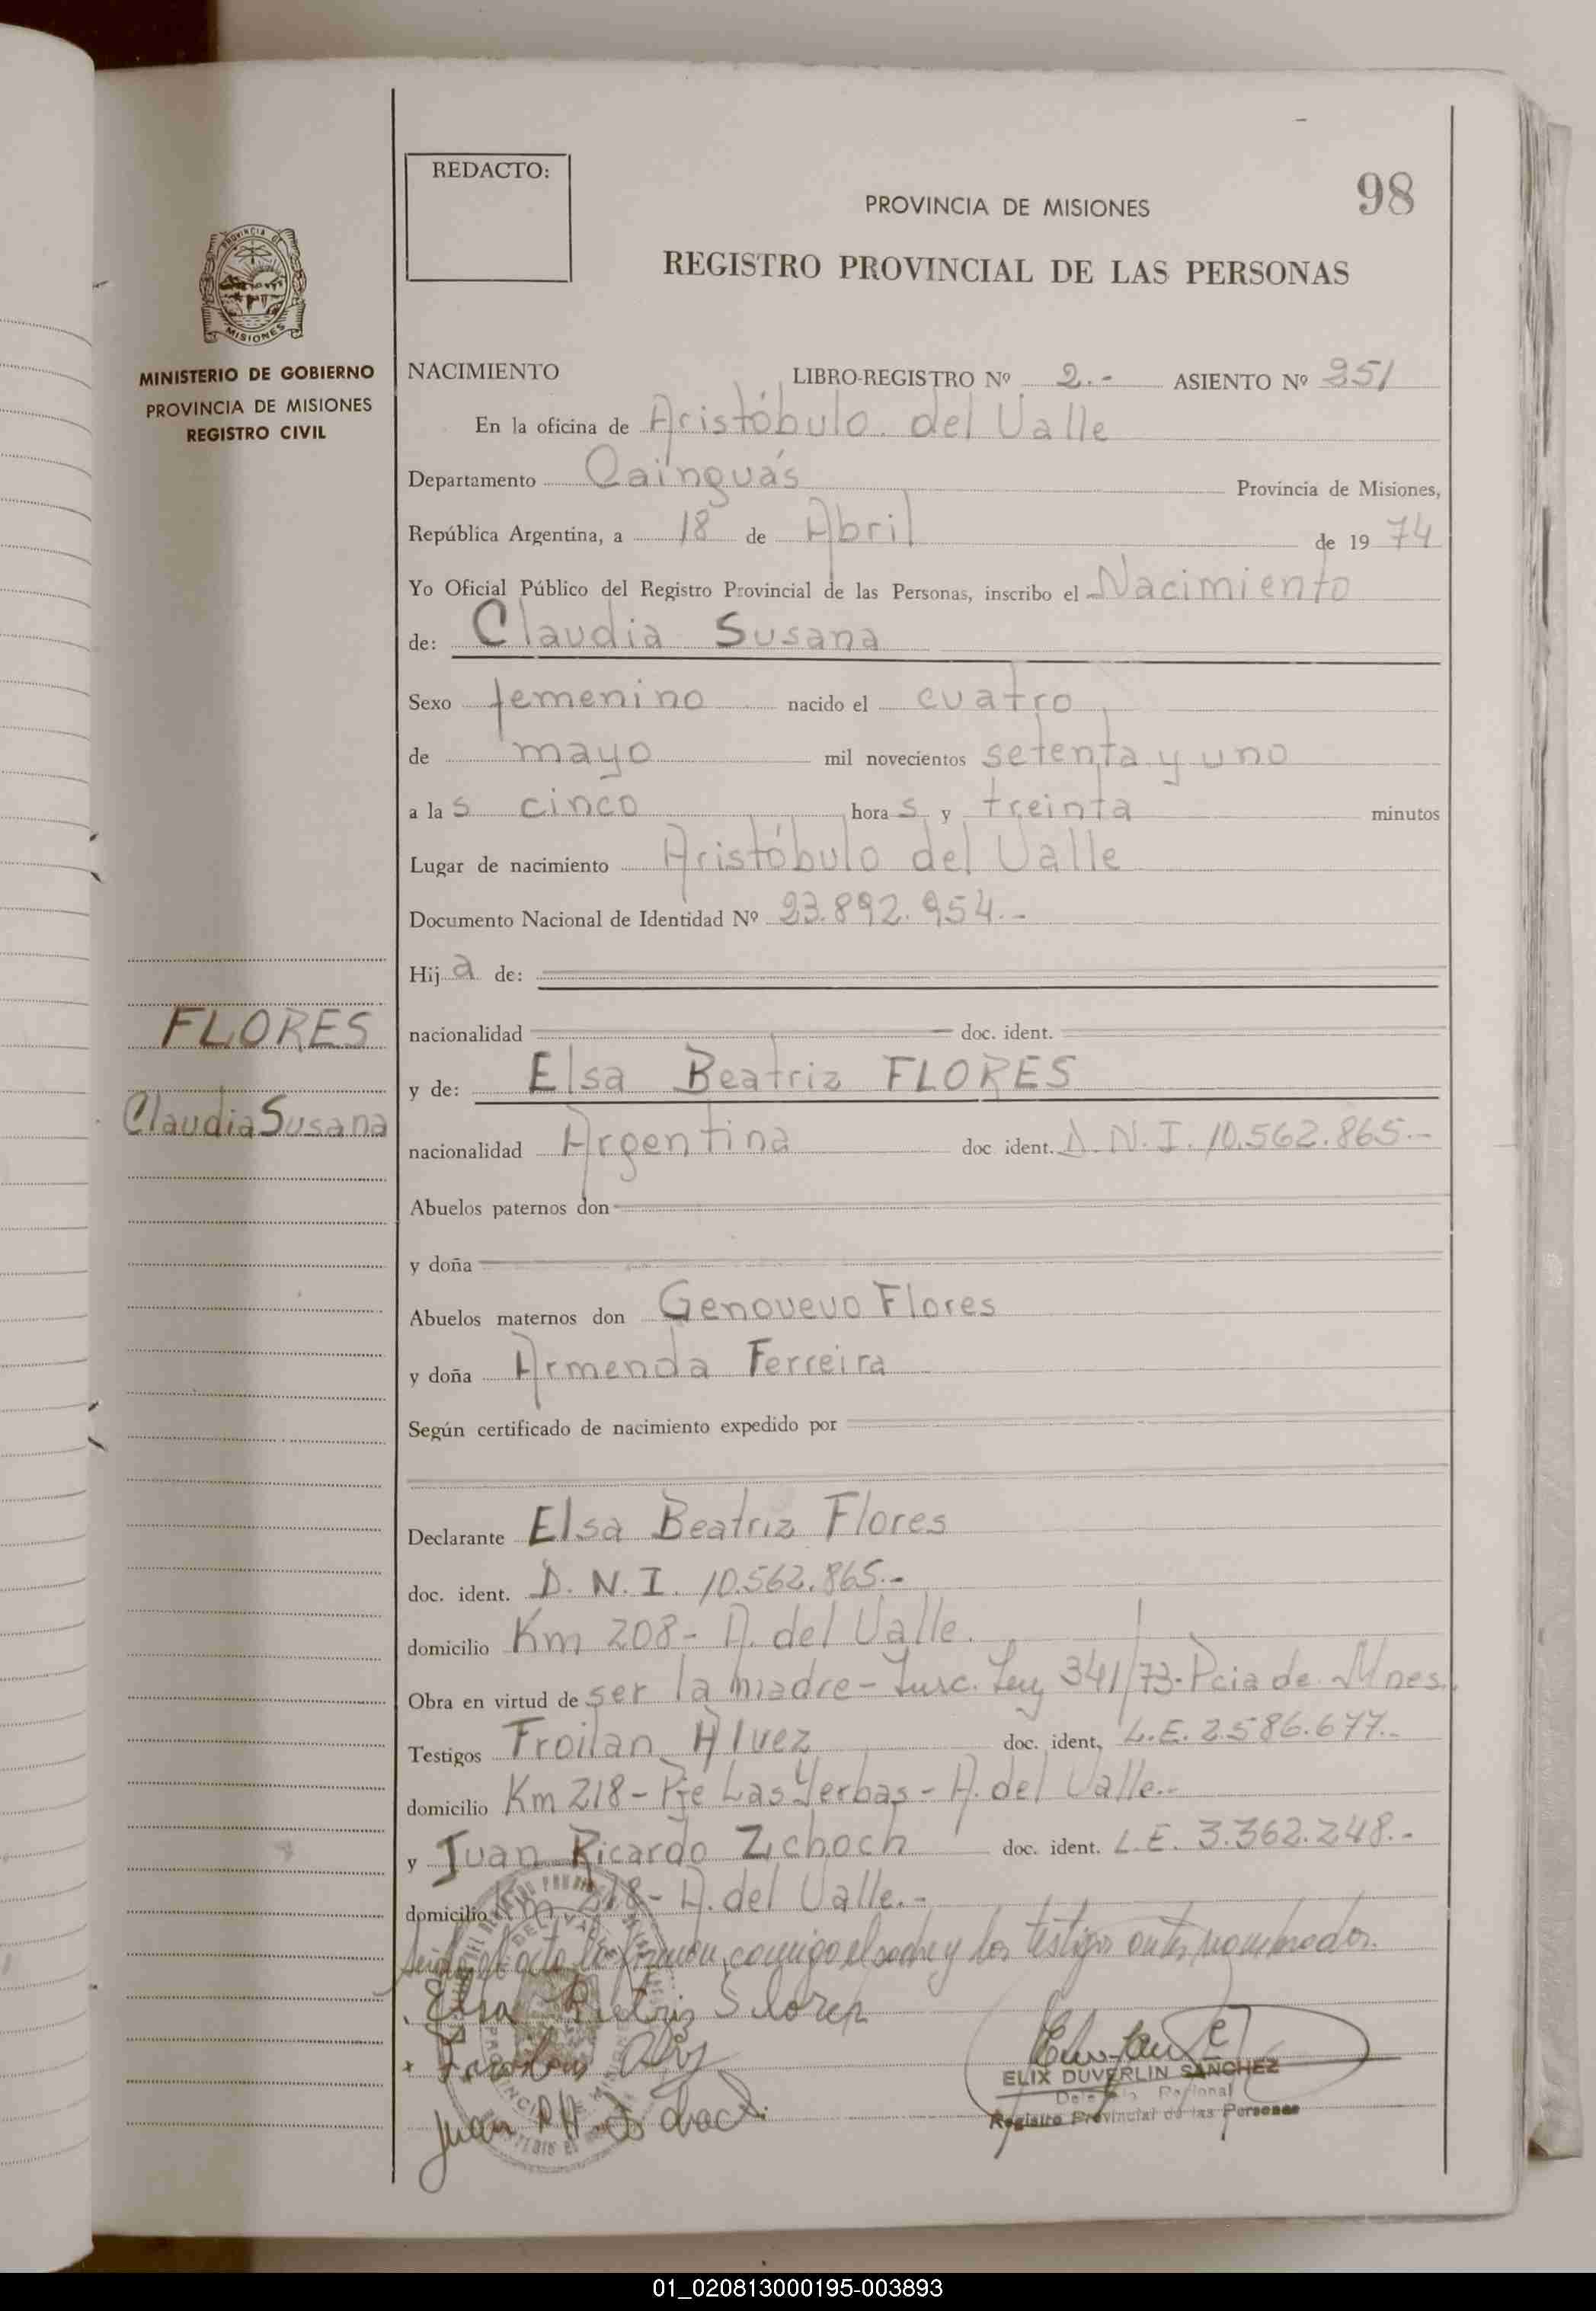 REDACTO:
98
PROVINCIA DE MISIONES
REGISTRO PROVINCIAL DE LAS PERSONAS
PROVINCIA DE
MISIONES
MINISTERIO DE GOBIERNO
PROVINCIA DE MISIONES
REGISTRO CIVIL
NACIMIENTO LIBRO-REGISTRO Nº 2.- ASIENTO Nº 951
En la oficina de Aristóbulo del Valle
Departamento Cainguás Provincia de Misiones,
República Argentina, a 18 de Abril de 1974
Yo Oficial Público del Registro Provincial de las Personas, inscribo el Nacimiento
de: Claudia Susana
Sexo femenino nacido el cuatro
de mayo mil novecientos setenta y uno
a las cinco horas y treinta minutos
Lugar de nacimiento Aristóbulo del Valle
Documento Nacional de Identidad Nº 23.892.954.-
Hija de:
FLORES
nacionalidad doc. ident.
y de: Elsa Beatriz FLORES
Claudia Susana
nacionalidad Argentina doc ident. D.N.I. 10.562.865.-
Abuelos paternos don
y doña
Abuelos maternos don Genovevo Flores
y doña Armenda Ferreira
Según certificado de nacimiento expedido por
Declarante Elsa Beatriz Flores
doc. ident. D.N.I. 10.562.865.-
domicilio Km 208- A. del Valle.
Obra en virtud de ser la madre- Insc. Ley 341/73- Pcia de Mnes.
Testigos Froilan Alvez doc. ident, L.E. 2.586.677.-
domicilio Km 218- Pje Las Yerbas- A. del Valle.-
y Juan Ricardo Zichoch doc. ident. L.E. 3.362.248.-
domicilio Km 218- A. del Valle.-
Leida el acta la firman conmigo el padre y los testigos antes nombrados.
Elsa Bietriz Flores
Juan
ELIX DUVERLIN SANCHEZ
Delegado Regional
Registro Provincial de las Personas
01_020813000195-003893